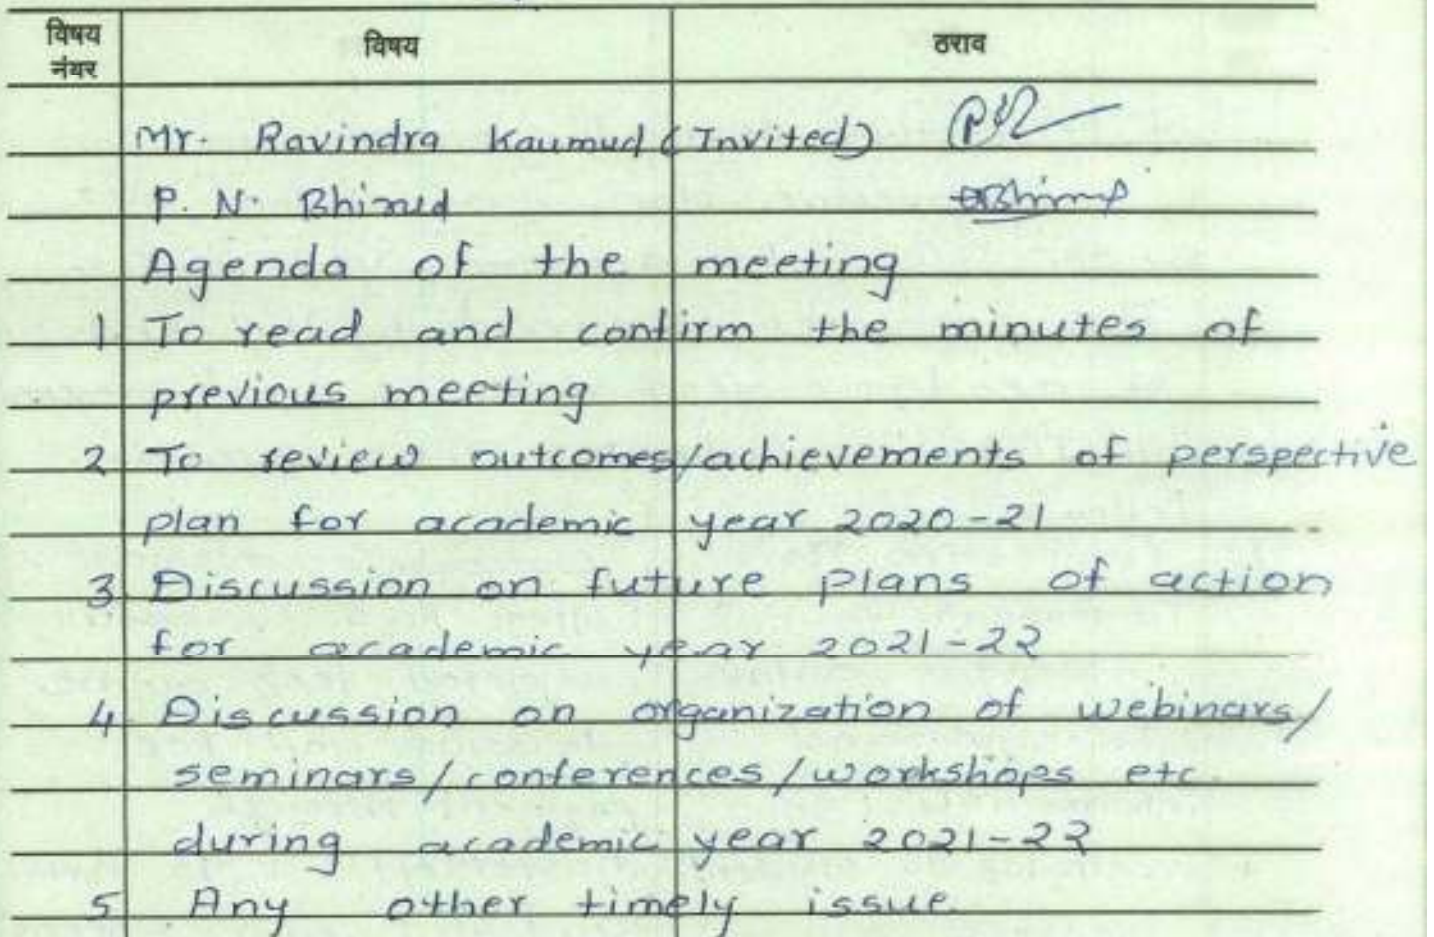 विषय नंबर विषय ठराव
Mr. Ravindra Kaumud (Invited)
P. N. Bhirud
Agenda of the meeting
1 To read and confirm the minutes of
previous meeting
2 To review outcomes/achievements of perspective
plan for academic year 2020-21
3 Discussion on future plans of action
for academic year 2021-22
4 Discussion on organization of webinars/
seminars/conferences/workshops etc.
during academic year 2021-22
5 Any other timely issue.